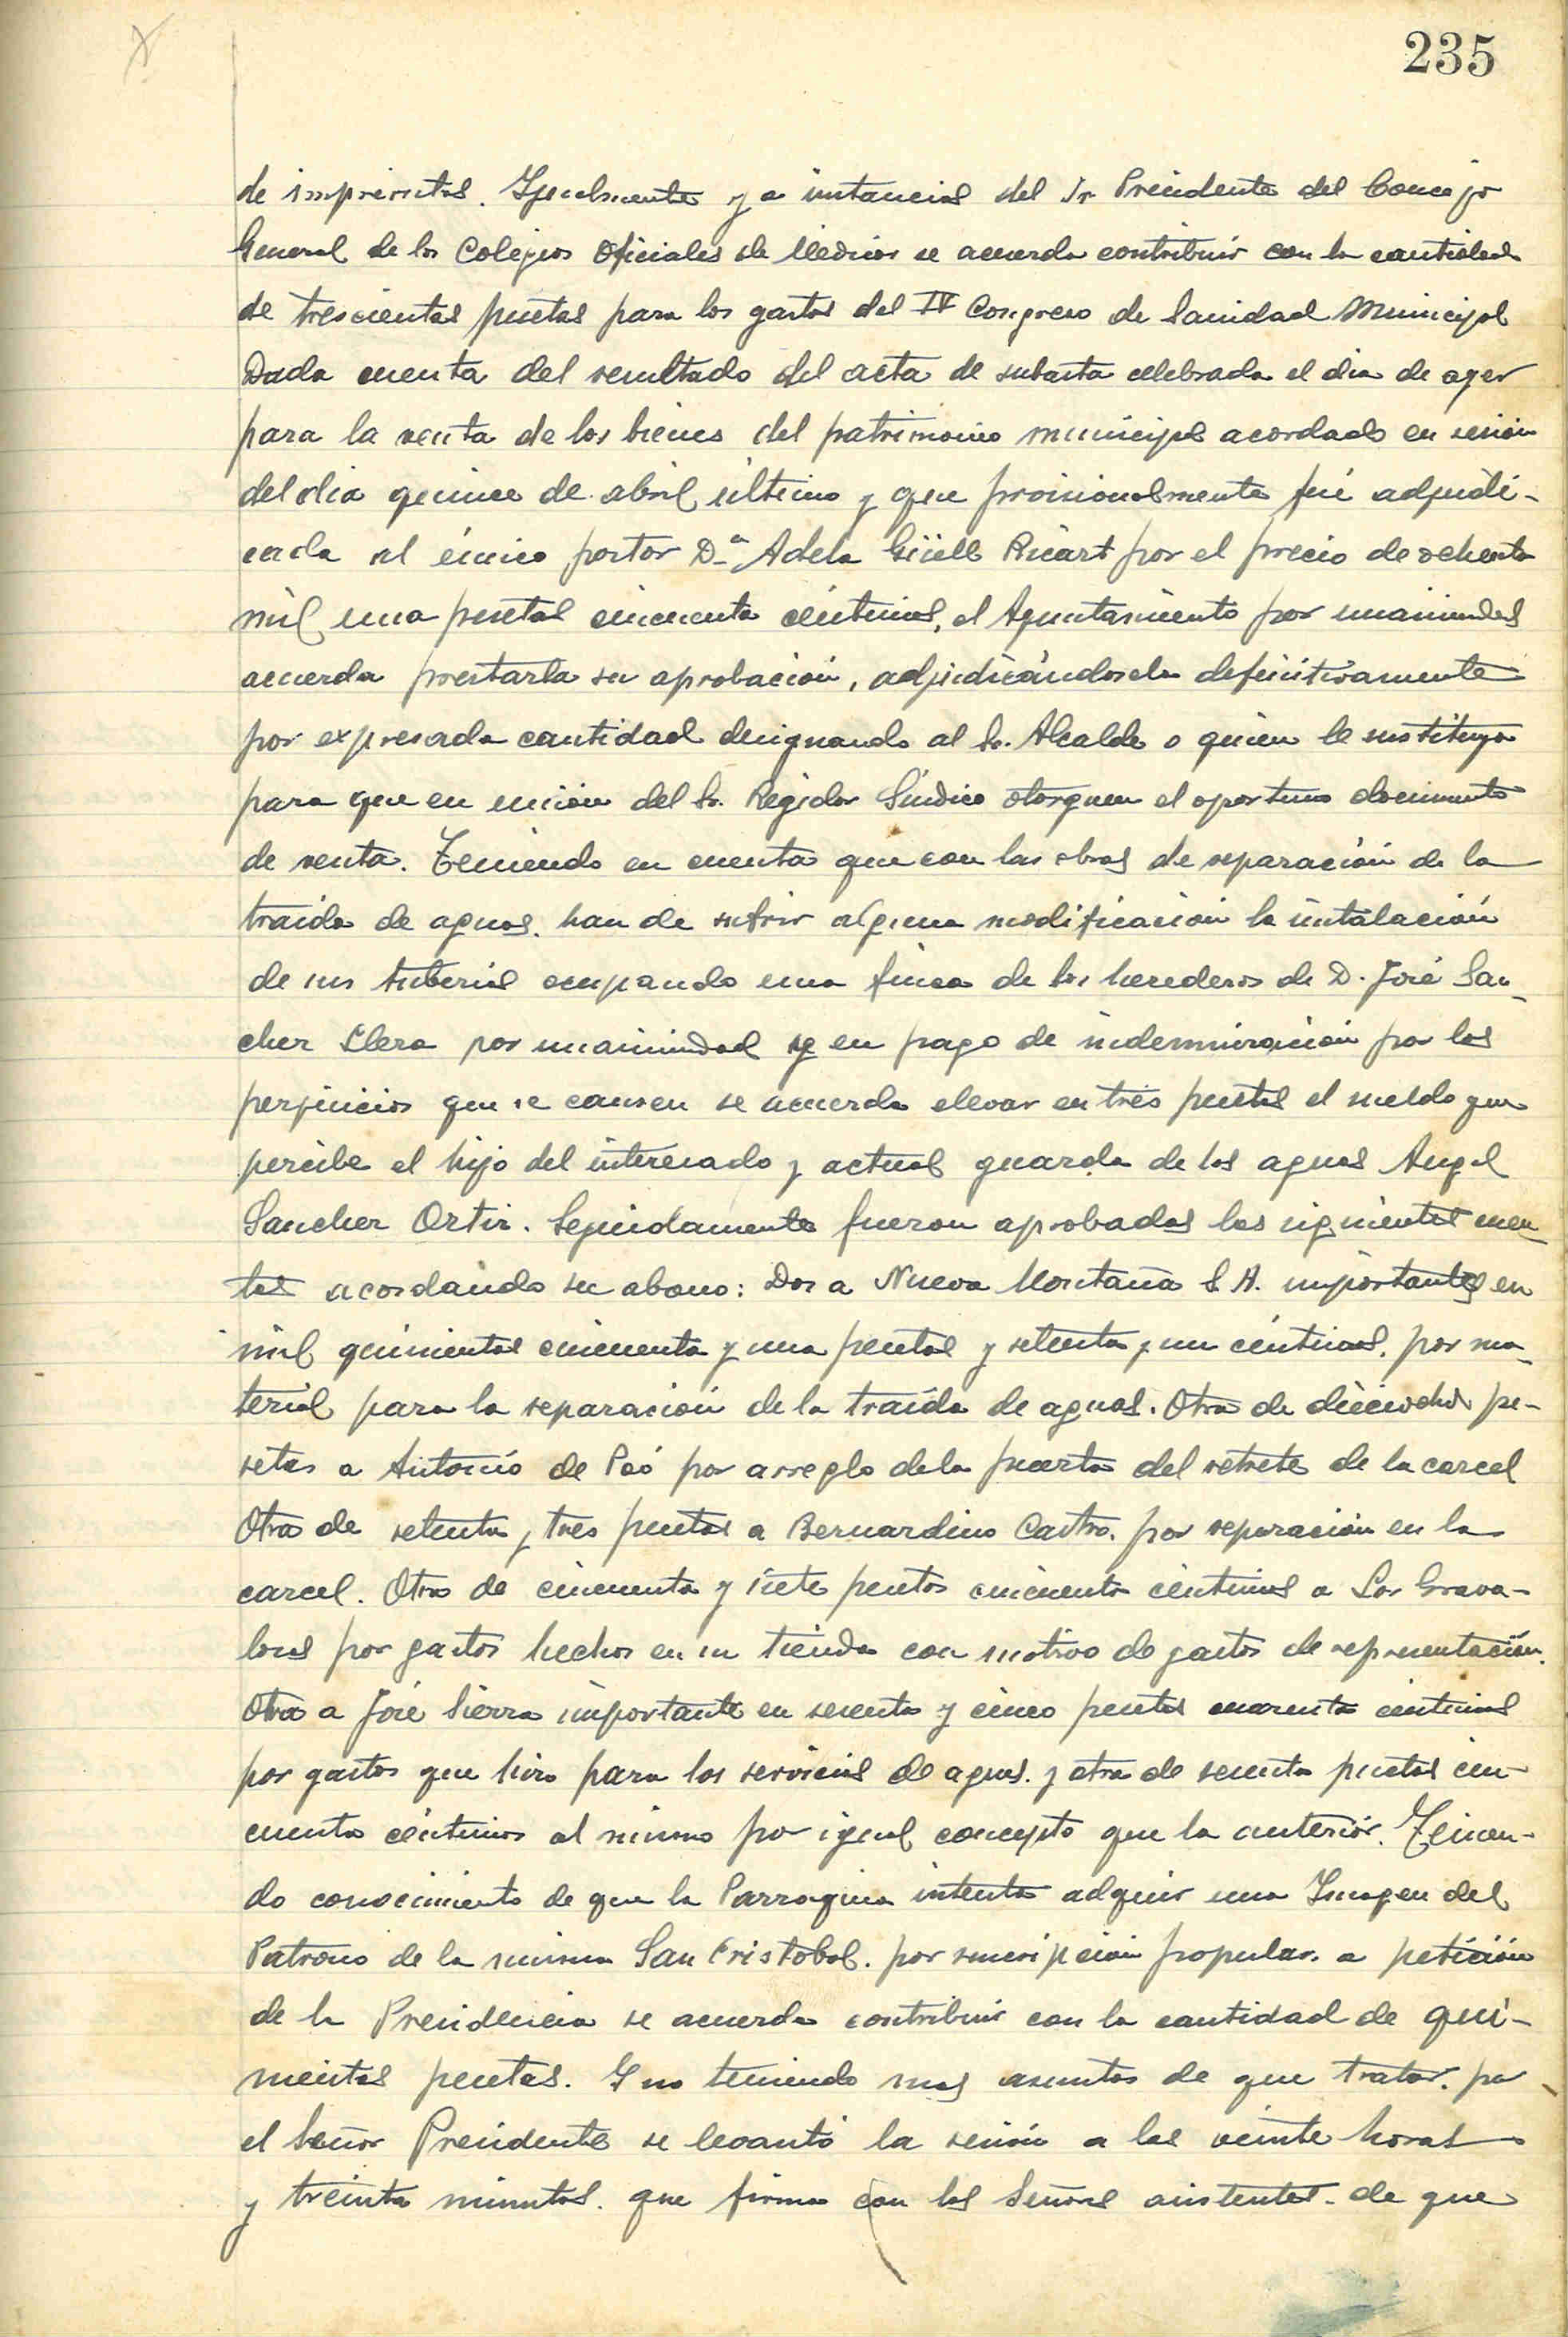 235
de imprevistos. Igualmente y a instancias del Sr Presidente del Consejo
General de los Colegios Oficiales de Medicos se acuerda contribuir con la cantidad
de trescientas pesetas para los gastos del IV Congreso de Sanidad Municipal
Dada cuenta del resultado del acta de subasta celebrada el dia de ayer
para la venta de los bienes del patrimonio municipal acordado en sesión
del dia quince de abril último y que provisionalmente fué adjudi-
cada al único postor D.ª Adela Güell Ricart por el precio de ochenta
mil una pesetas cincuenta céntimos, el Ayuntamiento por unanimidad
acuerda prestarla su aprobación, adjudicándosela definitivamente
por expresada cantidad designando al Sr. Alcalde o quien le sustituya
para que en unión del Sr. Regidor Síndico otorguen el oportuno documento
de venta. Teniendo en cuenta que con las obras de reparación de la
traída de aguas. han de sufrir alguna modificación la instalación
de sus tuberias ocupando una finca de los herederos de D. José San-
chez Llera por unanimidad y en pago de indemnización por los
perjuicios que se causen se acuerda elevar en tres pesetas el sueldo que
percibe el hijo del interesado y actual guarda de las aguas Angel
Sanchez Ortiz. Seguidamente fueron aprobadas las siguientes cuen-
tas acordando su abono: Dos a Nueva Montaña S.A. importantes en
mil quinientas cincuenta y una pesetas y setenta y un céntimos. por ma-
terial para la reparación de la traída de aguas. Otra de dieciocho pe-
setas a Antonio de Poó por arreglo de la puerta del retrete de la carcel
Otra de setenta y tres pesetas a Bernardino Castro. por reparación en la
carcel. Otra de cincuenta y siete pesetas cincuenta céntimos a Los Grava-
losas por gastos hechos en su tienda con motivo de gastos de representación.
Otra a José Sierra importante en sesenta y cinco pesetas cuarenta céntimos
por gastos que hizo para los servicios de aguas. y otra de sesenta pesetas cin-
cuenta céntimos al mismo por igual concepto que la anterior. Tenien-
do conocimiento de que la Parroquia intenta adquir una Imagen del
Patrono de la misma San Cristobal. por suscripción popular. a petición
de la Presidencia se acuerda contribuir con la cantidad de qui-
nientas pesetas. Y no teniendo mas asuntos de que tratar. por
el Señor Presidente se levantó la sesión a las veinte horas
y treinta minutos. que firma con los Señores asistentes. de que